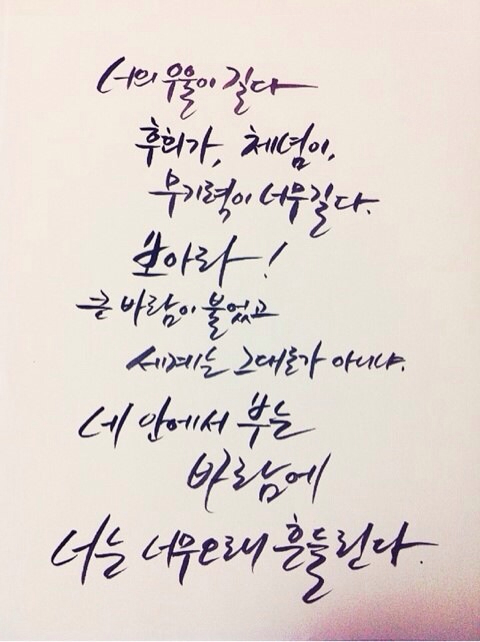 너의 우울이 길다
후회가, 체념이,
무기력이 너무 길다.
보아라!
큰 바람이 불었고
세계는 그대로가 아니냐.
네 안에서 부는
바람에
너는 너무 오래 흔들린다.